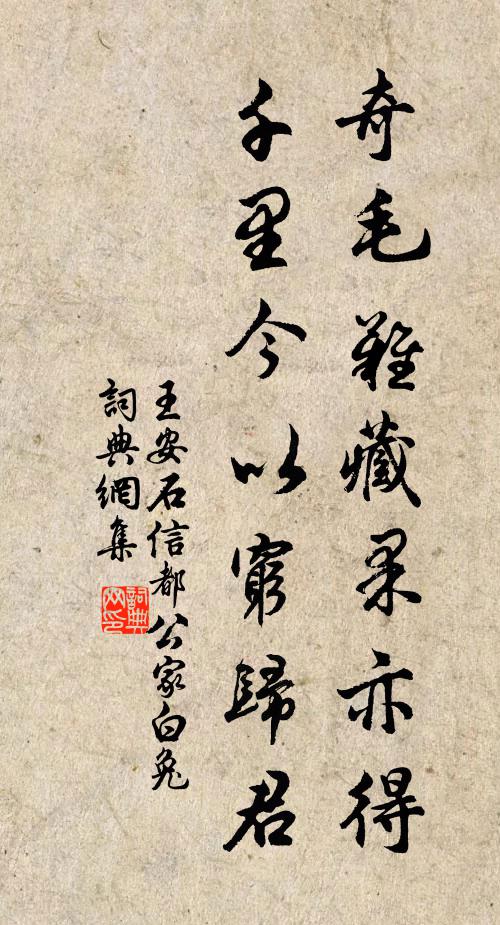 奇毛難藏果亦得
千里今以窮歸君
王安石信都公家白兔
詞典網集
詞典
网印